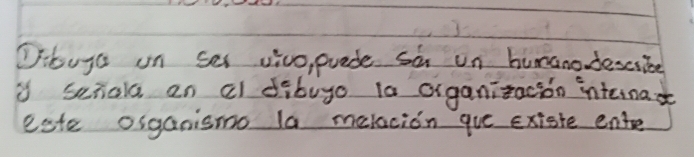 Dibuya un ser vivo, puede sár un humano.describe
y señala en el dibuyo la organización interna de
este osganismo la melación que existe ente